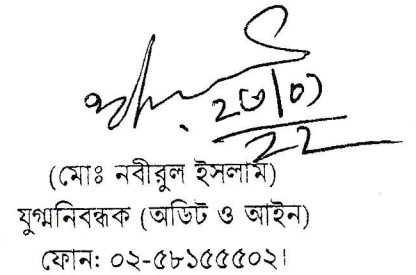 ২৩/০১
২২
(মোঃ নবীরুল ইসলাম)
যুগ্মনিবন্ধক (অডিট ও আইন)
ফোন: ০২-৫৮১৫৫৫০২।